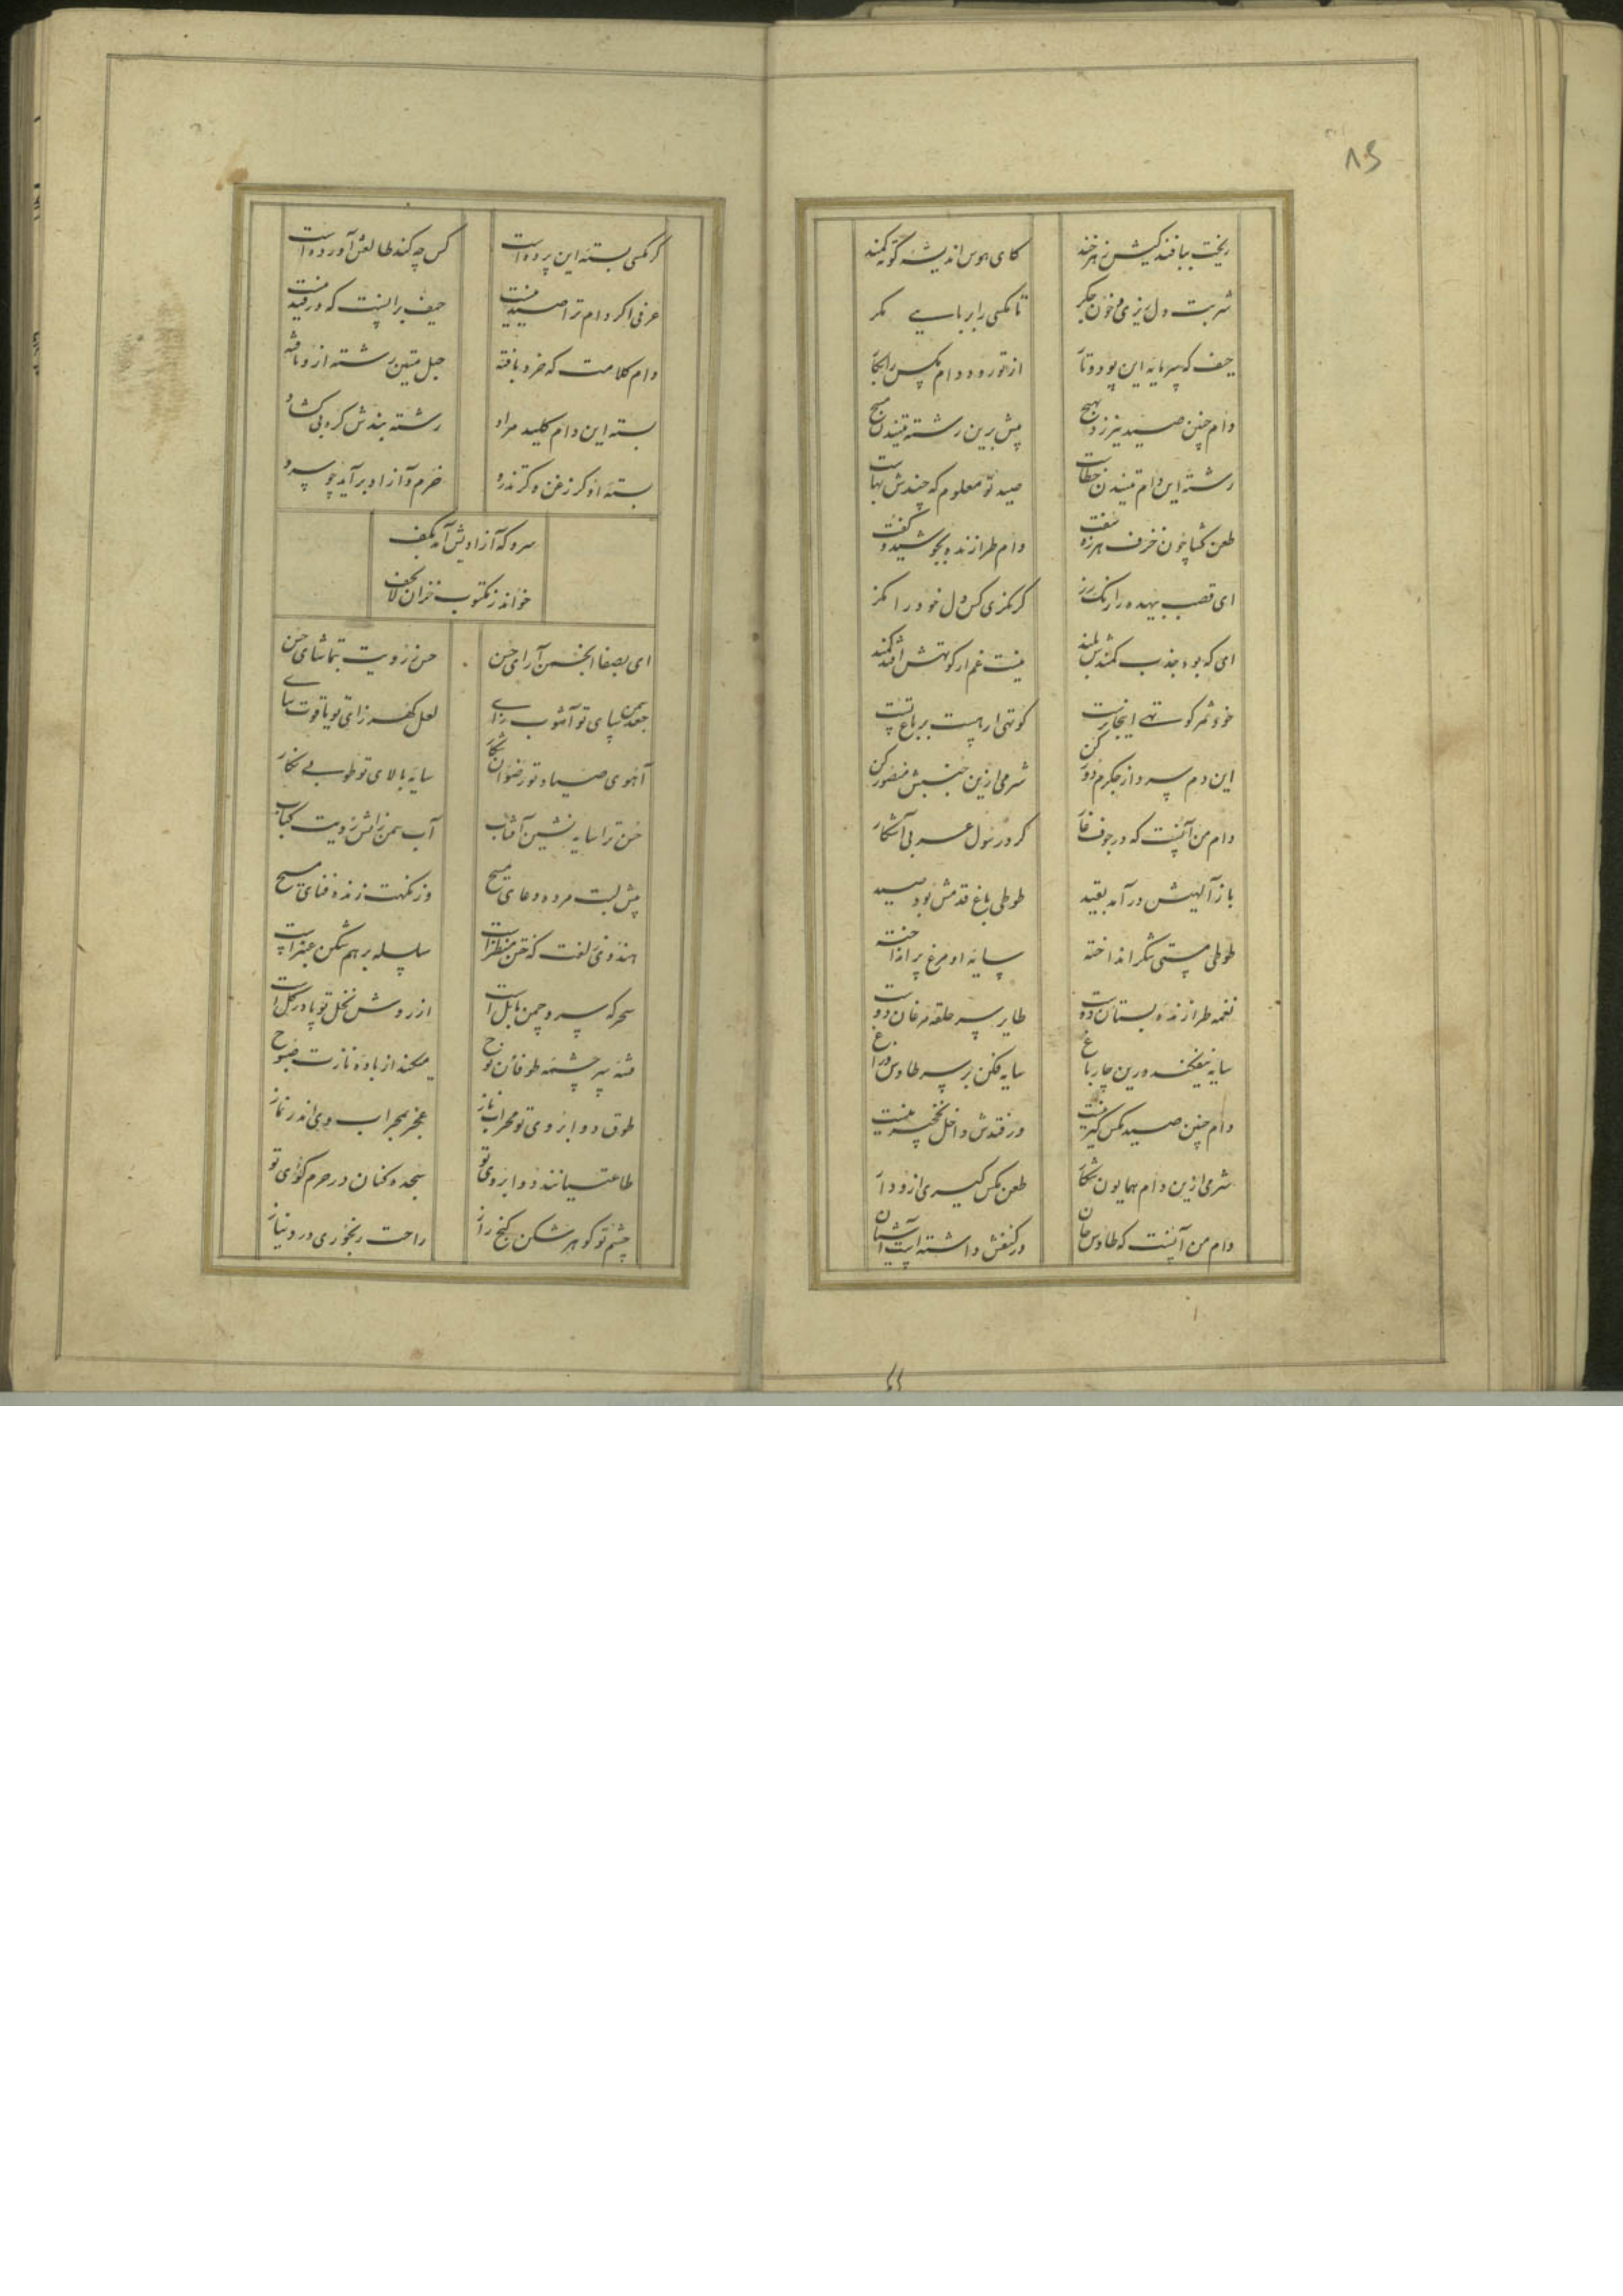 ۸۶
ریخت ببافندکیش زهرخند کای هوس اندیشهٔ کوته کمند
شربت دل ریزی و خون جکر تا مکسی را بربایی مکر
حیف که سرمایه این پود و تار از تو رود دام مکس را بکار
دام چنین صید نیرزد بهیچ پیش برین رشته متن
رشته این دام تنیدن خطاست صید تو معلوم که چندش بهاست
طعن کشا چون خزف هرزه سفت دام طرازنده بجوشید و گفت
ای قصب بیهده را رنک رز کر مکزی کس دل خود را مکز
ای که بود جذب کمندش بلند نیست غم ار کوتهش افتد کمند
خود ثمر کوتهی اینجا رست کوتهی ار هست بر باغ تست
این دم سرد از جکرم دور کن شرمی ازین جنبش منصور کن
دام من آنست که در جوف غار کرد رسول عربی آشکار
باز آلهیش درآمد بقید طوطی باغ قدمش بود صید
طوطی مستی شکر انداخته سایه او مرغ پر انداخته
نغمه طرازنده بستان دوست طایر سر حلقه مرغان دوست
سایه نیفکنده درین چارباغ سایه فکن بر سر طاوس و زاغ
دام چنین صید مکس گیر نیست ور فتدش داخل نخچیر نیست
شرمی ازین دام همایون شکار طعن مکس گیری ازو دار
دام من آنست که طاوس جان در کنفش داشته است آشیان
کر مکسی بسته این پرده است کس چه کند طالعش آورده است
عرفی اکر دام ترا صید نیست حیف برانست که در قید نیست
دام کلامت که خرد بافته حبل متین رشته ازو تافته
بسته این دام کلید مراد رشته بندش کره بی کشاد
بسته او کر زغن و کر تذرو خرم و آزاد برآید چو سرو
سرو که آزادیش آمد بکف
خواند ز مکتوب خزان لاتخف
ای بصفا انجمن آرای حسن حسن ز رویت بتماشای حسن
جعد سمن سای تو آشوب زای لعل کهرزای تو یاقوت سای
آهوی صیاد تو رضوان شکار سایه بالای تو طوبی نکار
حسن ترا سایه نشین آفتاب آب سمن زآتش رویت کباب
پیش لبت مرده دعای مسیح وز نکهت زنده فنای مسیح
هندوی زلفت که ختن منظر است سلسله برهم شکن عنبر است
سحر که سرو چمن بابل است از روش نخل تو پا در کل است
فتنه سر چشمه طوفان نوح میکند از باده نازت صبوح
طوق دو ابروی تو محراب ناز عجز بمحراب وی اندر نماز
طاعتیانند دو ابروی تو سجده کنان در حرم کوی تو
چشم تو کوهر شکن کنج راز راحت رنجوری درد و نیاز